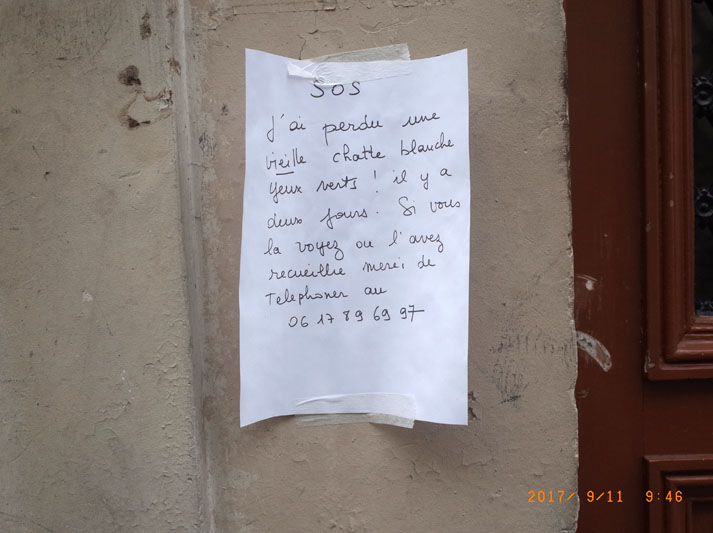 SOS
J'ai perdu une
vieille chatte blanche
Yeux verts ! il y a
deux jours. Si vous
la voyez ou l'avez
recueillie merci de
Telephoner au
06 17 89 69 97
2017/ 9/11 9:46